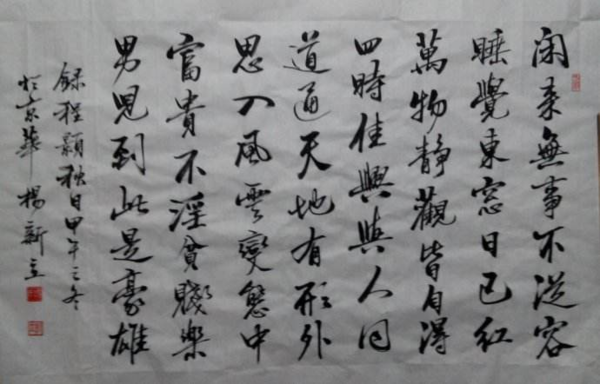 闲来無事不從容
睡覺東窗日已紅
萬物靜觀皆自得
四時佳興與人同
道通天地有形外
思入風雲變態中
富貴不淫貧賤樂
男兒到此是豪雄
錄程顥秋日甲午之冬
於京華楊新立